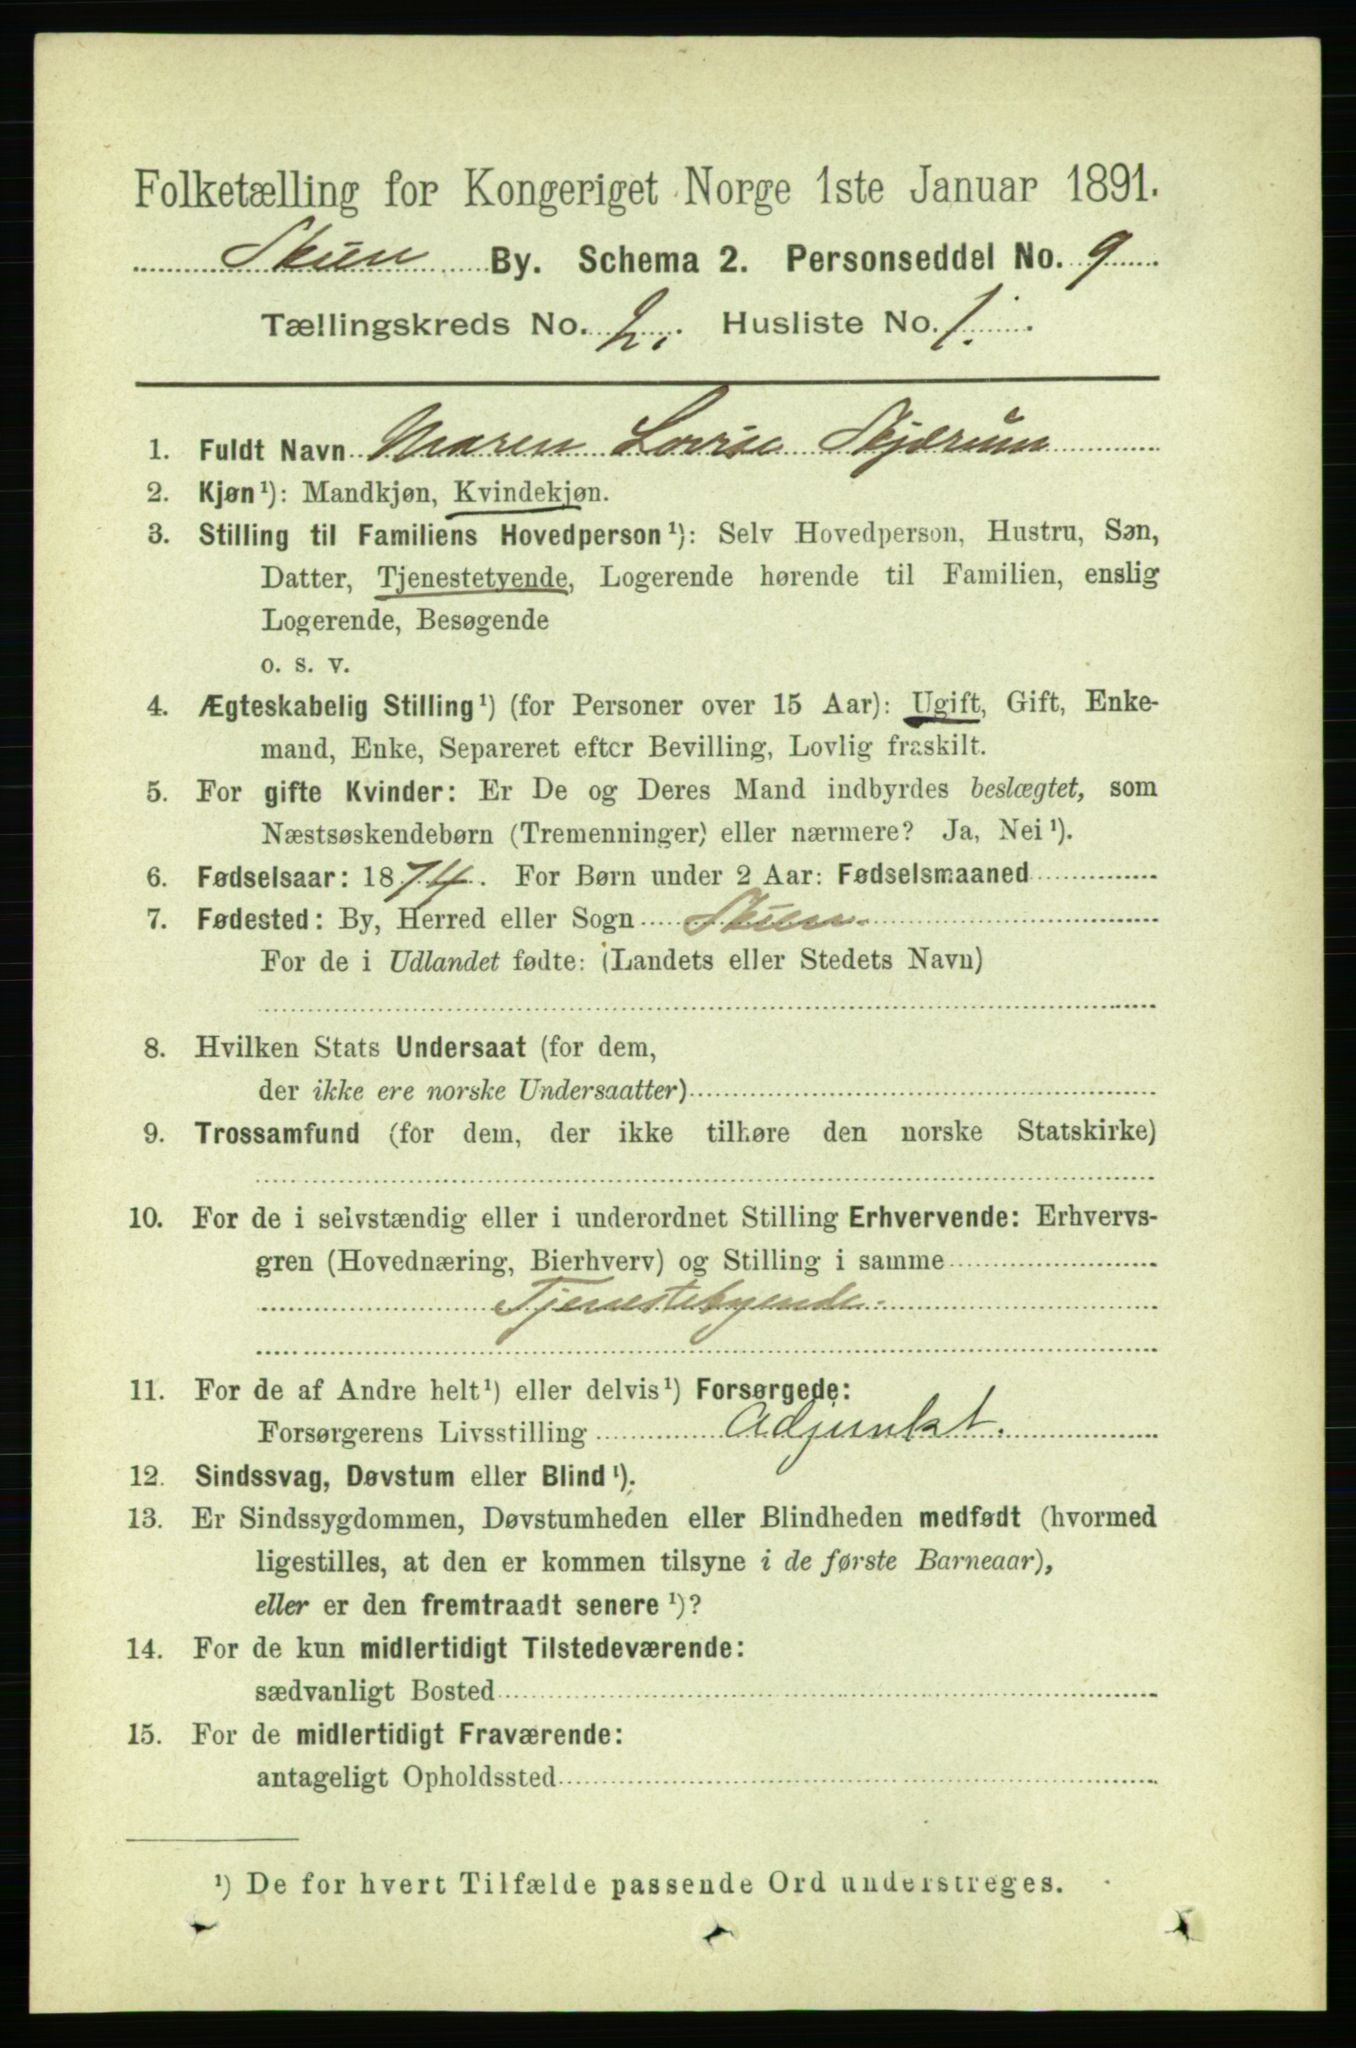 Folketælling for Kongeriget Norge 1ste Januar 1891.
Skien By. Schema 2. Personseddel No. 9
Tællingskreds No. 2. Husliste No. 1.
1. Fuldt Navn Maren Lovise Skjerum
2. Kjøn¹): Mandkjøn, Kvindekjøn.
3. Stilling til Familiens Hovedperson¹): Selv Hovedperson, Hustru, Søn,
Datter, Tjenestetyende, Logerende hørende til Familien, enslig
Logerende, Besøgende
o. s. v.
4. Ægteskabelig Stilling¹) (for Personer over 15 Aar): Ugift, Gift, Enke-
mand, Enke, Separeret efter Bevilling, Lovlig fraskilt.
5. For gifte Kvinder: Er De og Deres Mand indbyrdes beslægtet, som
Næstsøskendebørn (Tremenninger) eller nærmere? Ja, Nei¹).
6. Fødselsaar: 1874. For Børn under 2 Aar: Fødselsmaaned
7. Fødested: By, Herred eller Sogn Skien
For de i Udlandet fødte: (Landets eller Stedets Navn)
8. Hvilken Stats Undersaat (for dem,
der ikke ere norske Undersaatter)
9. Trossamfund (for dem, der ikke tilhøre den norske Statskirke)
10. For de i selvstændig eller i underordnet Stilling Erhvervende: Erhvervs-
gren (Hovednæring, Bierhverv) og Stilling i samme
Tjenestetyende.
11. For de af Andre helt¹) eller delvis¹) Forsørgede:
Forsørgerens Livsstilling Adjunkt.
12. Sindssvag, Døvstum eller Blind¹).
13. Er Sindssygdommen, Døvstumheden eller Blindheden medfødt (hvormed
ligestilles, at den er kommen tilsyne i de første Barneaar),
eller er den fremtraadt senere¹)?
14. For de kun midlertidigt Tilstedeværende:
sædvanligt Bosted
15. For de midlertidigt Fraværende:
antageligt Opholdssted
¹) De for hvert Tilfælde passende Ord understreges.